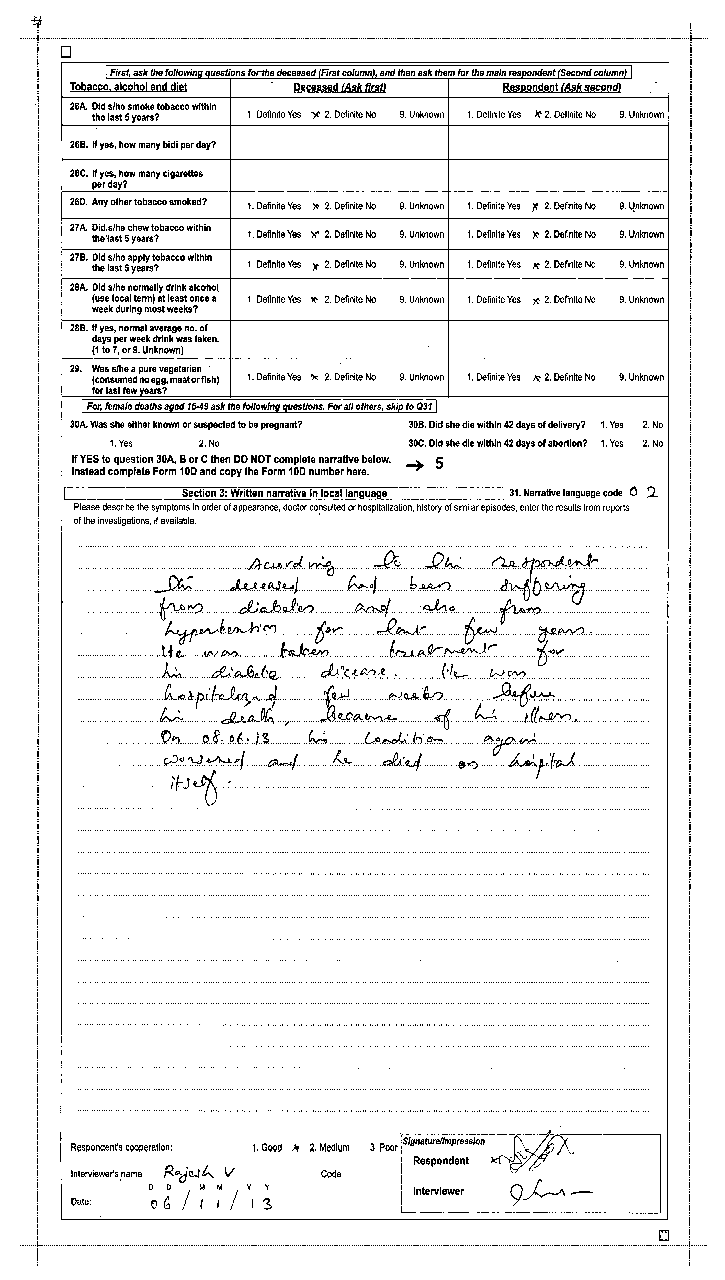 First, ask the following questions for the deceased (First column), and then ask them for the main respondent (Second column)
Tobacco, alcohol and diet Deceased (Ask first) Respondent (Ask second)
26A. Did s/ho smoke tobacco within the last 5 years? 1. Definite Yes × 2. Definite No 9. Unknown 1. Definite Yes × 2. Definite No 9. Unknown
26B. If yes, how many bidi per day?
26C. If yes, how many cigarettes per day?
26D. Any other tobacco smoked? 1. Definite Yes × 2. Definite No 9. Unknown 1. Definite Yes × 2. Definite No 9. Unknown
27A. Did s/he chew tobacco within the last 5 years? 1. Definite Yes × 2. Definite No 9. Unknown 1. Definite Yes × 2. Definite No 9. Unknown
27B. Did s/he apply tobacco within the last 5 years? 1. Definite Yes × 2. Definite No 9. Unknown 1. Definite Yes × 2. Definite No 9. Unknown
28A. Did s/he normally drink alcohol (use local term) at least once a week during most weeks? 1. Definite Yes × 2. Definite No 9. Unknown 1. Definite Yes × 2. Definite No 9. Unknown
28B. If yes, normal average no. of days per week drink was taken. (1 to 7, or 9. Unknown)
29. Was s/he a pure vegetarian (consumed no egg, meat or fish) for last few years? 1. Definite Yes × 2. Definite No 9. Unknown 1. Definite Yes × 2. Definite No 9. Unknown
For, female deaths aged 15-49 ask the following questions. For all others, skip to Q31
30A. Was she either known or suspected to be pregnant? 30B. Did she die within 42 days of delivery? 1. Yes 2. No
1. Yes 2. No 30C. Did she die within 42 days of abortion? 1. Yes 2. No
If YES to question 30A, B or C then DO NOT complete narrative below.
Instead complete Form 10D and copy the Form 10D number here. → 5
Section 3: Written narrative in local language 31. Narrative language code 0 2
Please describe the symptoms in order of appearance, doctor consulted or hospitalization, history of similar episodes, enter the results from reports
of the investigations, if available.
Acording to the respondent
the deceased had been suffering
from diabetes and also from
hypertention for last few years.
He was taken treatment for
his diabetic dicease. He was
hospitalized few weeks before
his death, because of his illness.
On 08.06.13 his condition again
worsened and he died on hospital
itself.
Respondent's cooperation: 1. Good × 2. Medium 3 Poor Signature/Impression
Respondent
Interviewer's name Rajesh V Code
D D M M Y Y
Date: 06/11/13 Interviewer